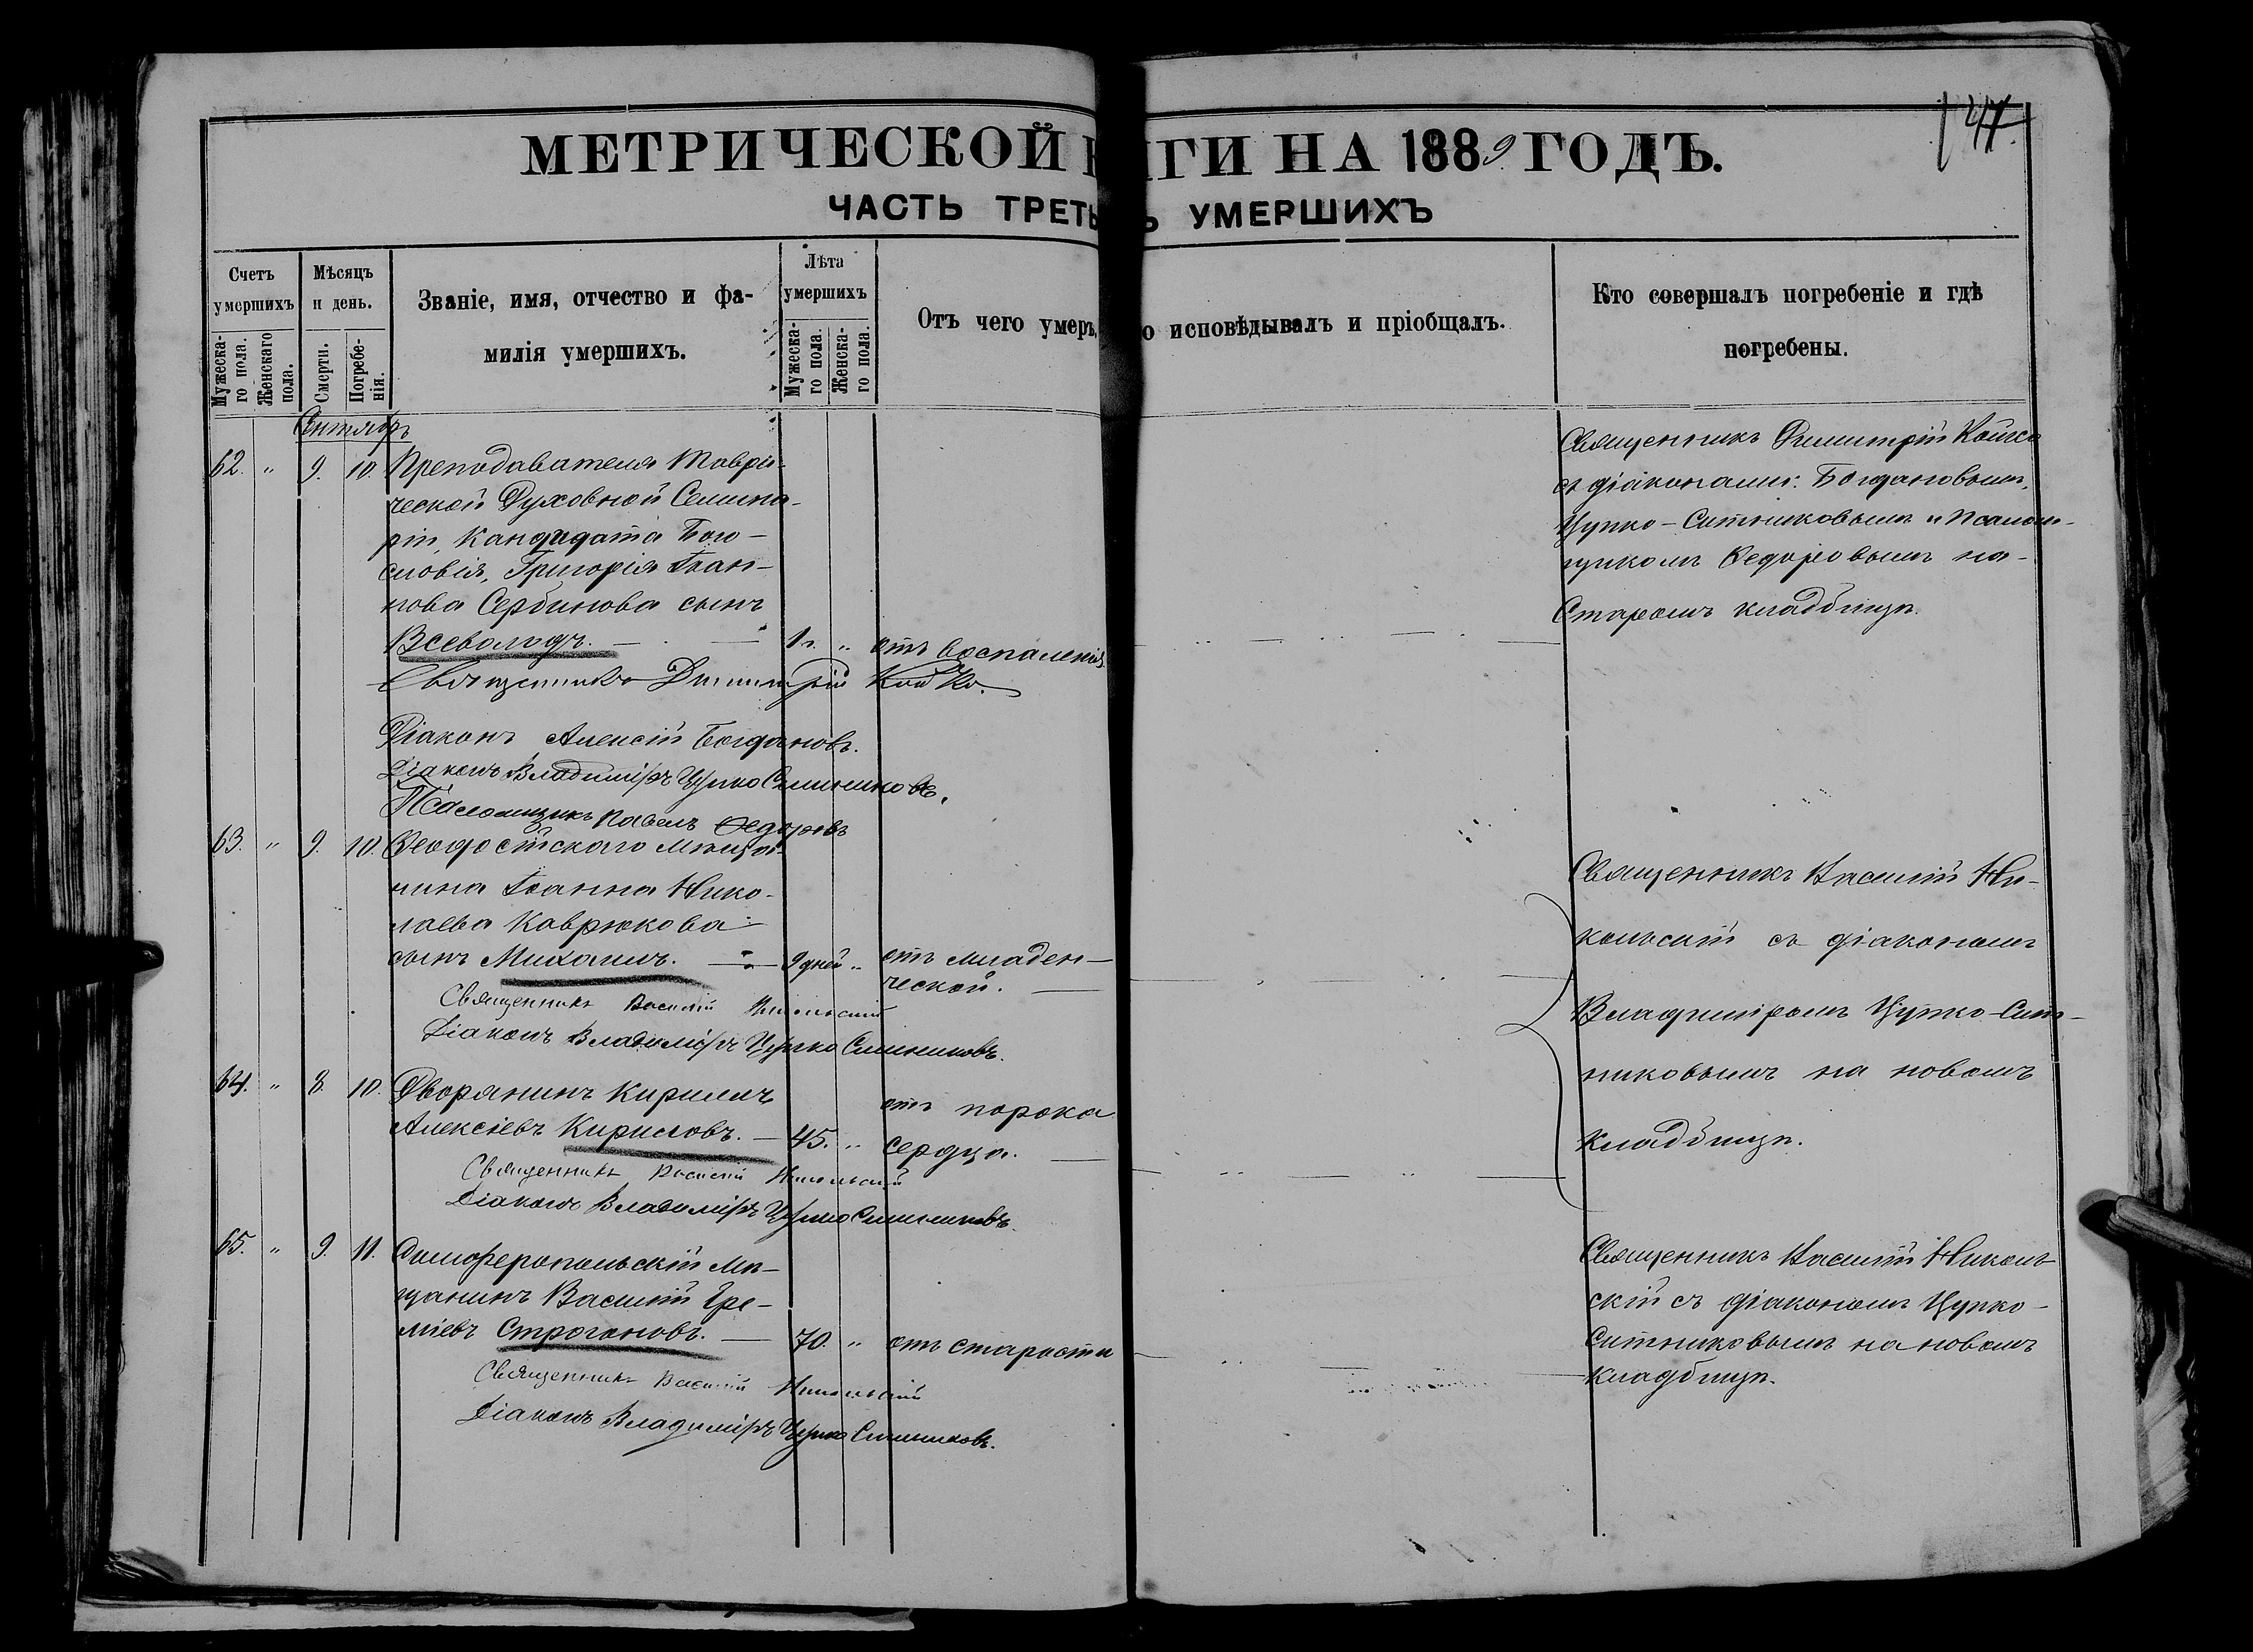 МЕТРИЧЕСКОЙ К ИГИ НА 1889 ГОДЪ.
ЧАСТЬ ТРЕТЬ Ъ УМЕРШИХЪ
Счетъ умершихъ
Мужеска-го пола.
Женскаго пола.
Мѣсяцъ и день.
Смерти.
Погребе-нія.
Званіе, имя, отчество и фа-
милія умершихъ.
Лѣта умершихъ
Мужеска-го пола.
Женска-го пола.
Отъ чего умеръ,
о исповѣдывалъ и пріобщалъ.
Кто совершалъ погребеніе и гдѣ
погребены.
Сентябрь
62. " 9. 10. Преподавателя Таври-
ческой Духовной Семина-
ріи, Кандидата Бого-
словія, Григорія Іоан-
нова Сербинова сынъ
Всеволодъ. — 1 г. " отъ воспаленія
Священникъ Димитрій Койко.
Діаконъ Алексій Богдановъ.
Діаконъ Владиміръ Цупко Ситниковъ.
Псаломщикъ Павелъ Федоровъ
Священникъ Димитрій Койко
съ діаконами: Богдановымъ,
Цупко-Ситниковымъ и псалом-
щикомъ Федоровымъ на-
Старомъ кладбищѣ.
63. " 9. 10. Феодосійскаго мѣща-
нина Іоанна Нико-
лаева Коврюкова
сынъ Михаилъ. — 9 дней " отъ младен-
ческой. —
Священникъ Василій Никольскій
Діаконъ Владиміръ Цупко Ситниковъ.
64. " 8. 10. Дворянинъ Кириллъ
Алексіевъ Кириловъ. — 45. " отъ порока
сердца. —
Священникъ Василій Никольскій
Діаконъ Владиміръ Цупко Ситниковъ.
Священникъ Василій Ни-
кольскій съ діакономъ
Владиміромъ Цупко-Сит-
никовымъ на новомъ
кладбищѣ.
65. " 9. 11. Симферопольскій мѣ-
щанинъ Василій Ере-
міевъ Строгоновъ. — 70. " отъ старости
Священникъ Василій Никольскій
Діаконъ Владиміръ Цупко Ситниковъ.
Священникъ Василій Николь-
скій съ діакономъ Цупко-
Ситниковымъ на новомъ
кладбищѣ.